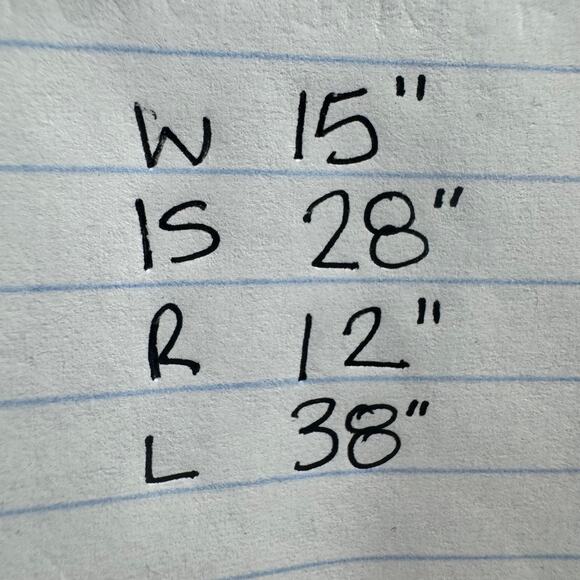 W 15"
IS 28"
R 12"
L 38"